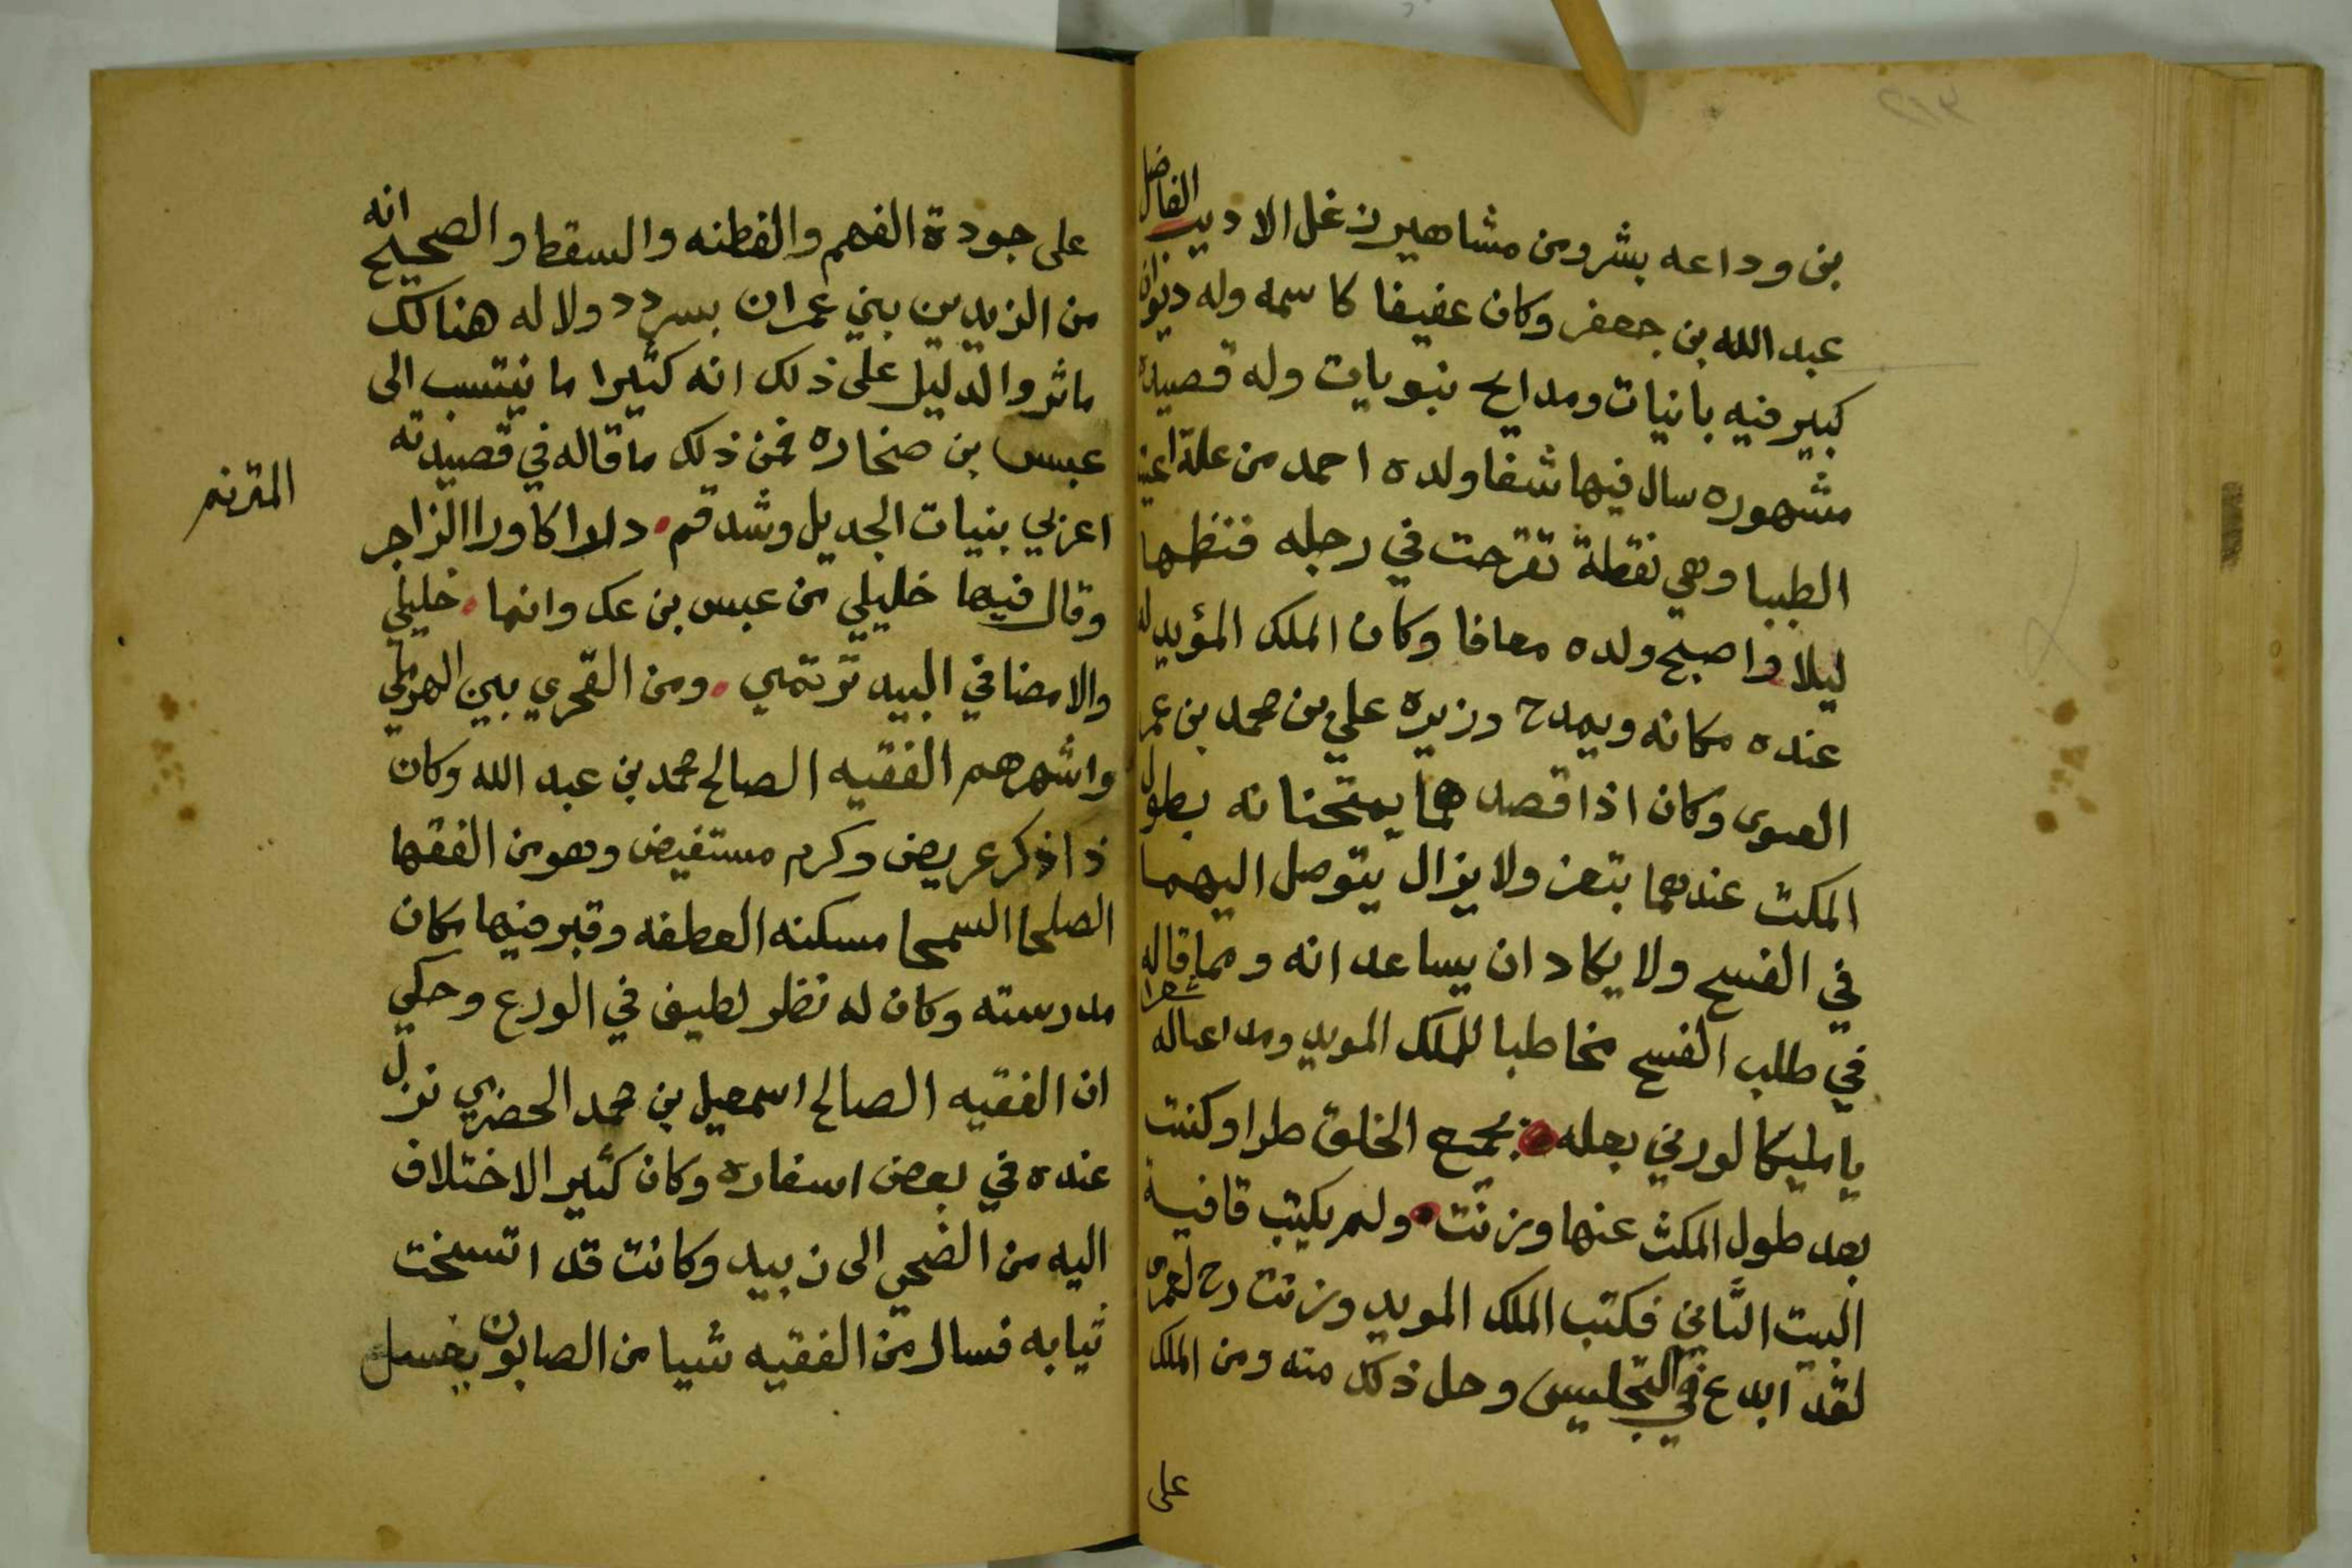 بن وداعه بشر ومن مشاهير زعل الاديب الفاضل
عبد الله بن جعفر وكان عفيفا كاسمه وله ديوان
كبير فيه بانيات ومدايح بنويات وله قصيده
مشهوره سال فيها شفا ولده احمد من علة اعيت
الطببا وهي نقطة تقرحت في رجله فنظمها
ليلا واصبح ولده معافا وكان الملك المؤيد له
عنده مكانه ويمدح وزيره علي بن محمد بن عمر
العسوى وكان اذا قصدهما يمتحنانه بطول
المكث عندهما بتعز ولا يزال يتوصل اليهما
في الفسح ولا يكاد ان يساعدانه ومما قاله
في طلب الفسح مخاطبا للملك المويد ومداعباله شعرا
يا مليكا لوزني بعله بجميع الخلق طرا وكنت
بعد طول المكث عنها وزنت ولم يكتب قافية
البيت الثاني فكتب الملك المويد وزنت رح لعمرى
لقد ابدع في التجليس وحل ذلك منه ومن الملك
على
على جودة الفهم والفطنه والسقط والصحيح انه
من الزيديين بني عمران بسردد ولاله هنالك
ماثر والدليل على ذلك انه كثيرا ما ينتسب الى
عبس بن صخاره فمن ذلك ما قاله في قصيدته
اعزبي بنيات الجديل وشدقم الزاجر
المترنم
وقال فيها خليلي من عبس بن عك وانما خليلي
والامضا في البيد ترتمي ومن القحري بين الهرملي
واشهرهم الفقيه الصالح محمد بن عبد الله وكان
ذا ذكر عريض وكرم مستفيض وهو من الفقها
الصلحا السمحا مسكنه العطفه وقبر فيها مكان
مدرسته وكان له نظر لطيف في الورع وحكي
ان الفقيه الصالح اسمعيل بن محمد الحضرمي نزل
عنده في بعض اسفاره وكان كثير الاختلاف
اليه من الضحي الى زبيد وكانت قد اتسخت
ثيابه فسال من الفقيه شيا من الصابون يغسل